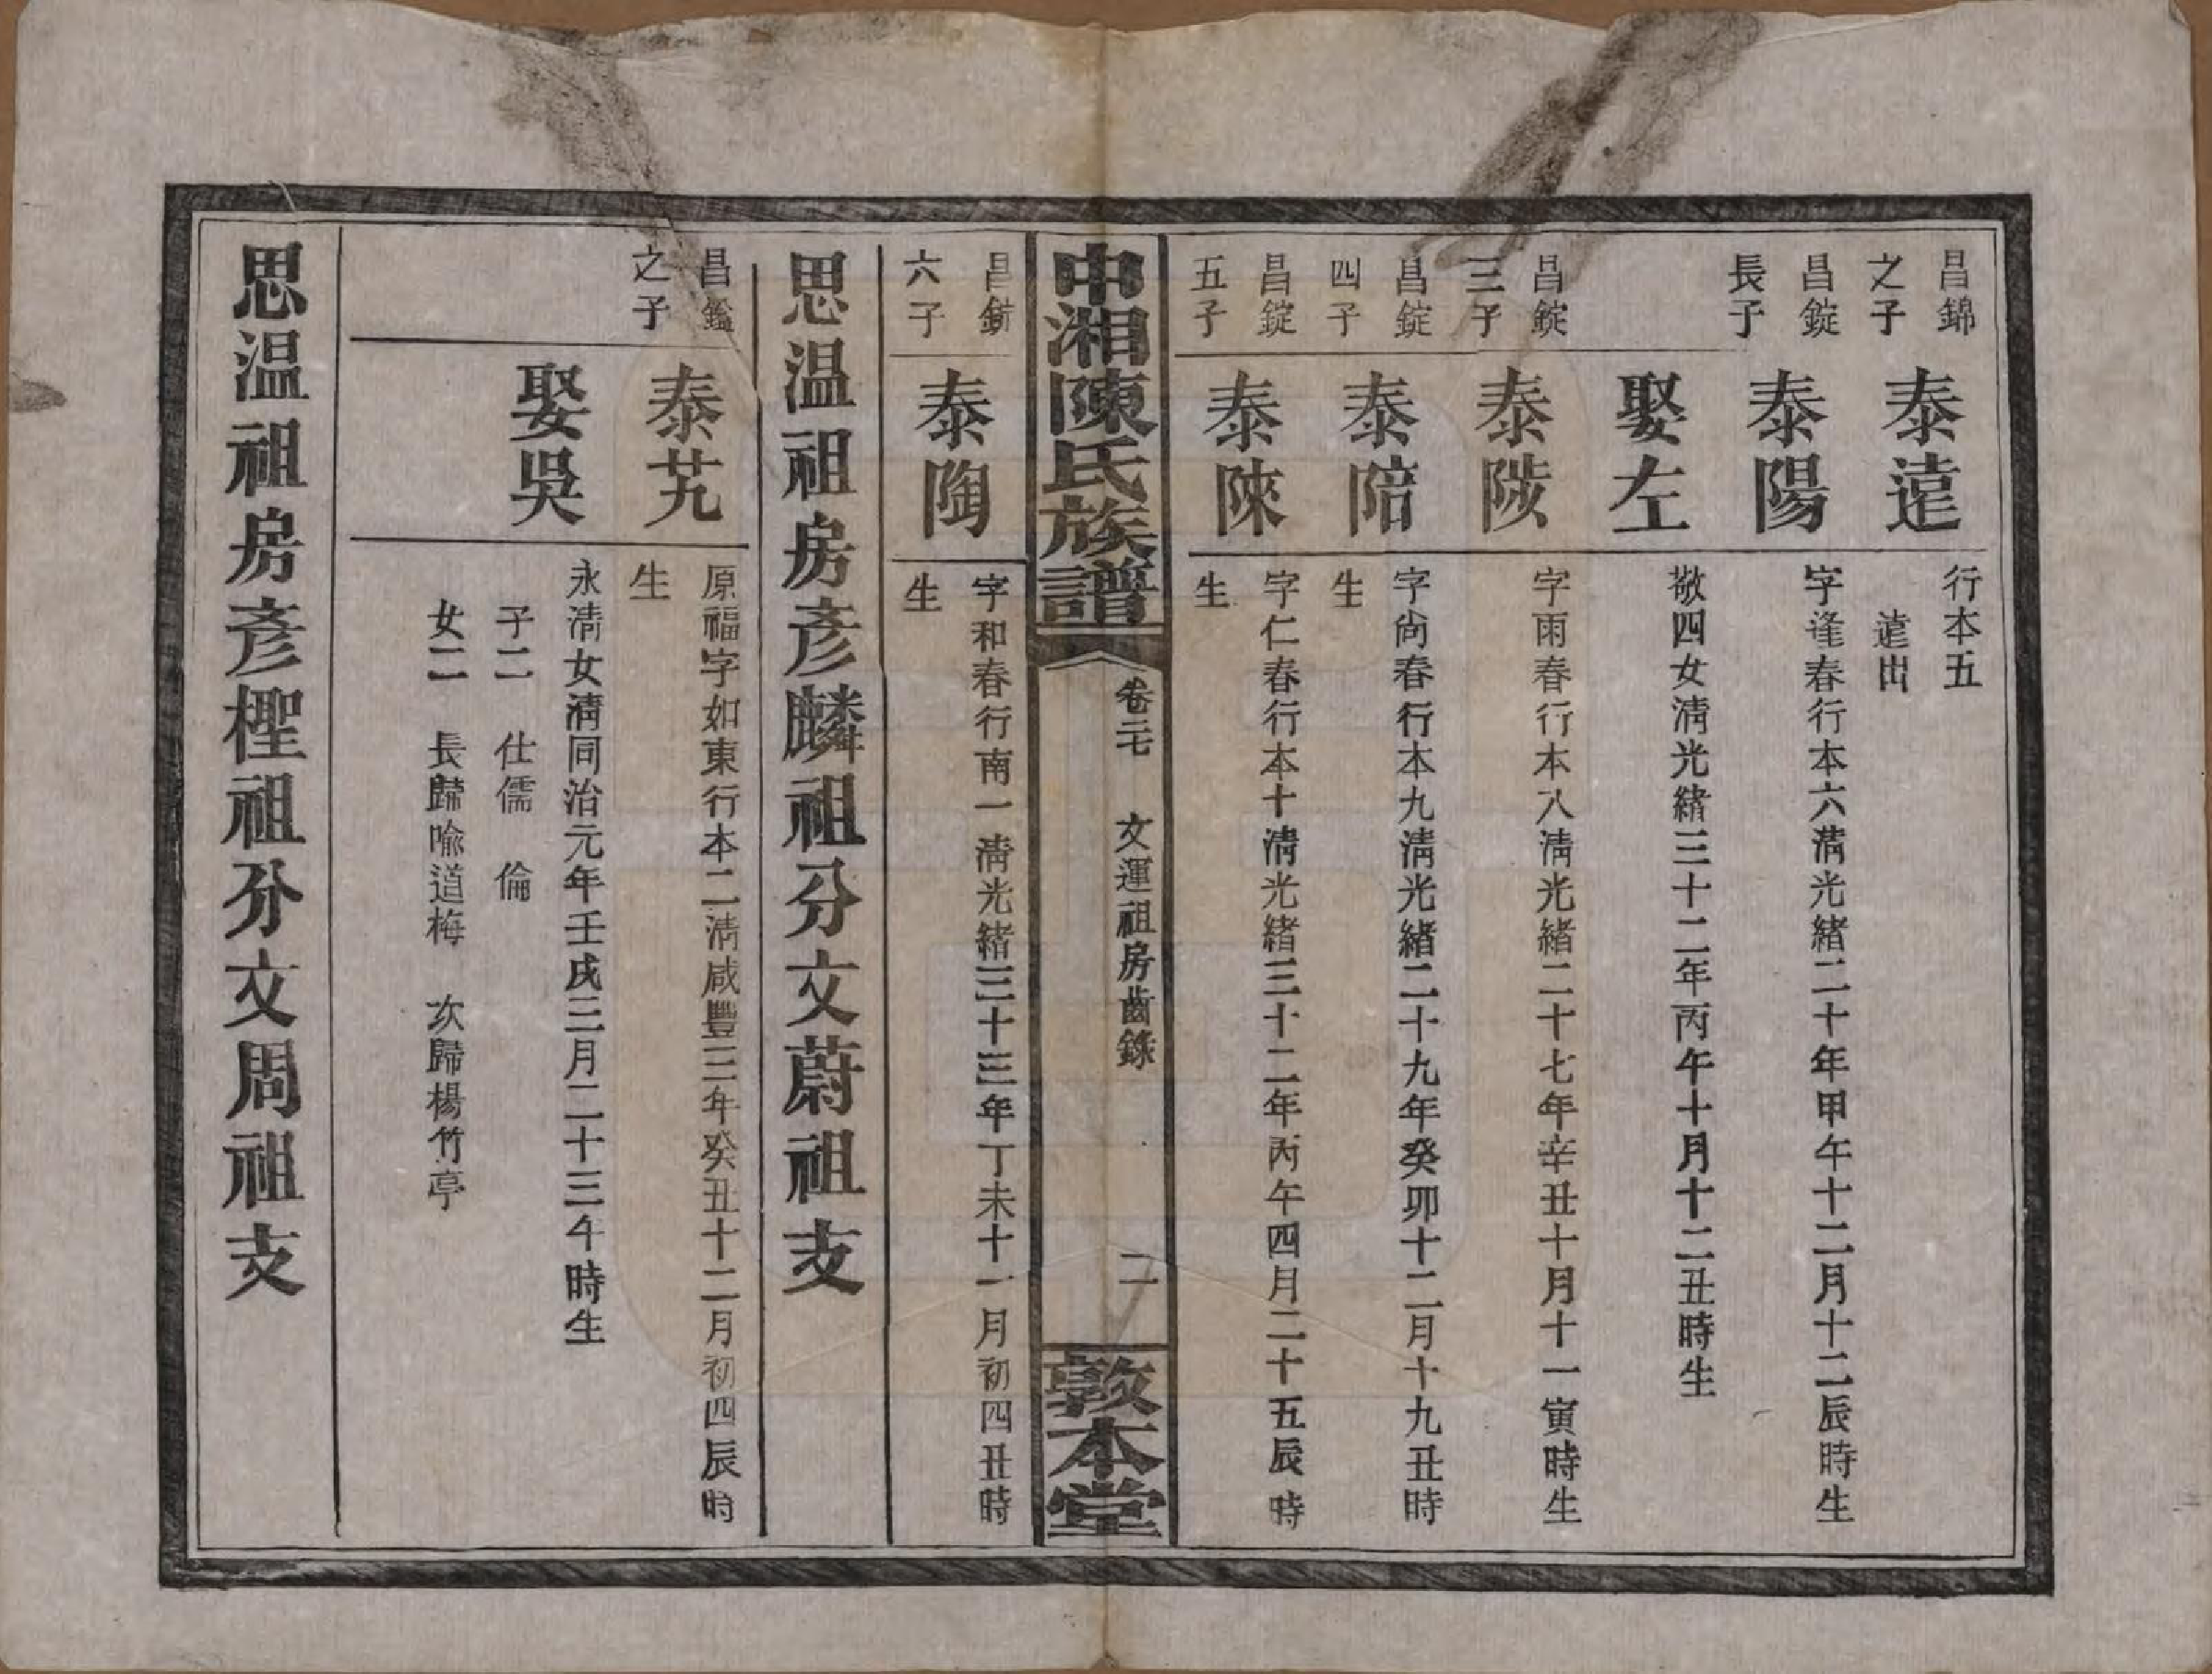 昌錦
之子
泰遠
行本五
遠出
昌錠
長子
泰陽
字逢春行本六淸光緒二十年甲午十二月十二辰時生
娶左
敬四女淸光緒三十二年丙午十月十二丑時生
昌錠
三子
泰陟
字雨春行本八淸光緒二十七年辛丑十月十一寅時生
昌錠
四子
泰陪
字尙春行本九淸光緒二十九年癸卯十二月十九丑時
生
昌錠
五子
泰陳
字仁春行本十淸光緒三十二年丙午四月二十五辰時
生
中湘陳氏族譜
卷二七
文運祖房齒錄
二
敦本堂
昌
六子
泰陶
字和春行南一淸光緒三十三年丁未十一月初四丑時
生
思温祖房彥麟祖分文蔚祖支
昌鑑
之子
泰艽
原福字如東行本二淸咸豐三年癸丑十二月初四辰時
生
娶吳
永淸女淸同治元年壬戌三月二十三午時生
子二 仕儒 倫
女二 長歸喩道梅 次歸楊竹亭
思温祖房彥檉祖分文周祖支